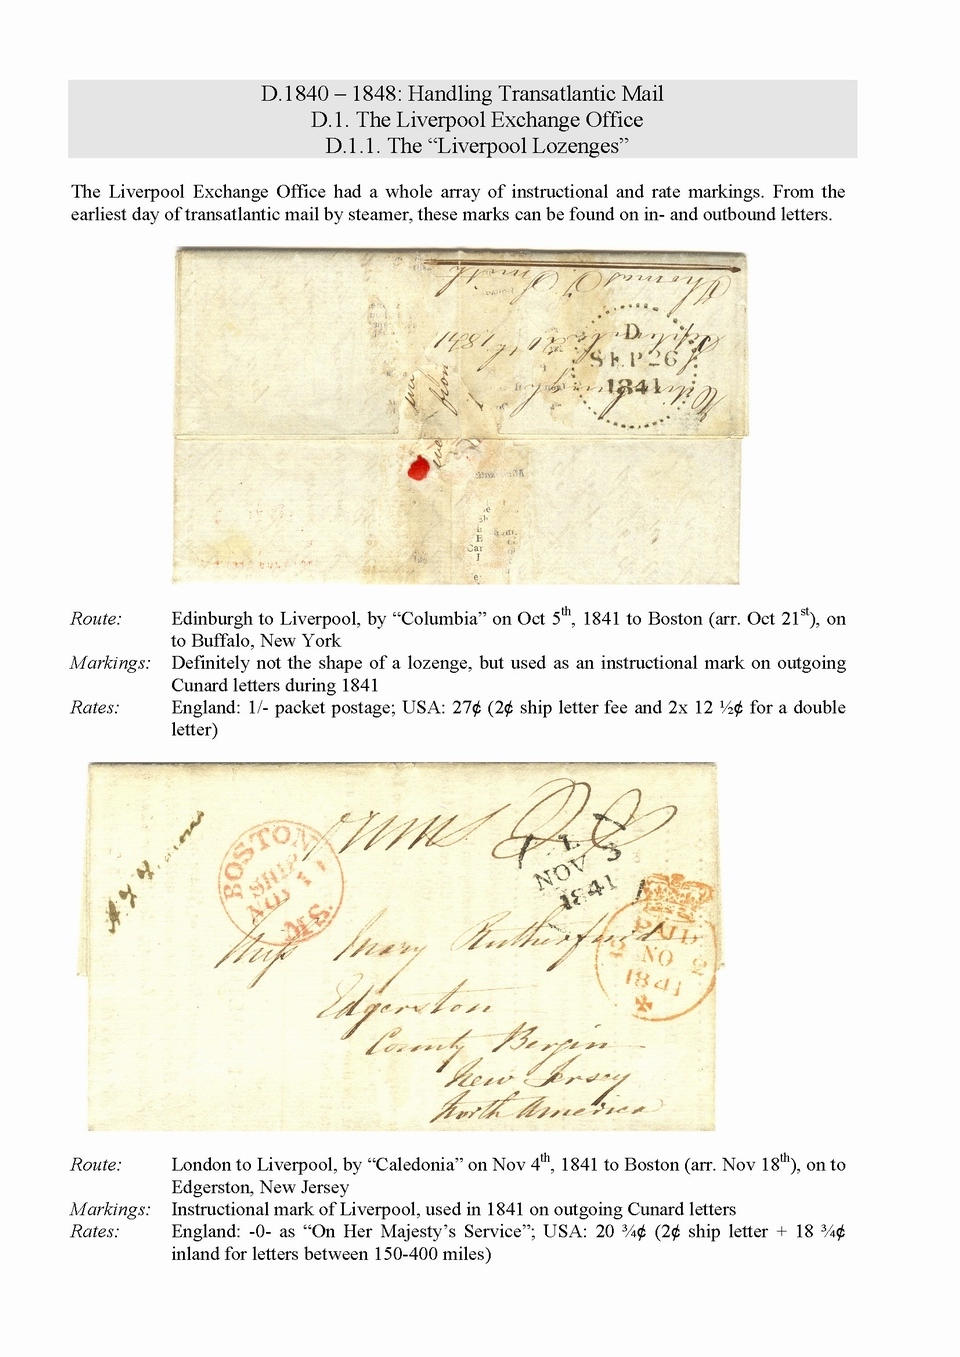 D.1840 – 1848: Handling Transatlantic Mail
D.1. The Liverpool Exchange Office
D.1.1. The “Liverpool Lozenges”
The Liverpool Exchange Office had a whole array of instructional and rate markings. From the
earliest day of transatlantic mail by steamer, these marks can be found on in- and outbound letters.
Thomas Smith
1841
D
SEP 26
1841
Route: Edinburgh to Liverpool, by “Columbia” on Oct 5th, 1841 to Boston (arr. Oct 21st), on
to Buffalo, New York
Markings: Definitely not the shape of a lozenge, but used as an instructional mark on outgoing
Cunard letters during 1841
Rates: England: 1/- packet postage; USA: 27¢ (2¢ ship letter fee and 2x 12 ½¢ for a double
letter)
BOSTON
SHIP
MS.
L
NOV 3
1841
PAID
NO
1841
Miss Mary Rutherfurd
Edgerston
County Bergin
New Jersey
North America
Route: London to Liverpool, by “Caledonia” on Nov 4th, 1841 to Boston (arr. Nov 18th), on to
Edgerston, New Jersey
Markings: Instructional mark of Liverpool, used in 1841 on outgoing Cunard letters
Rates: England: -0- as “On Her Majesty’s Service”; USA: 20 ¾¢ (2¢ ship letter + 18 ¾¢
inland for letters between 150-400 miles)